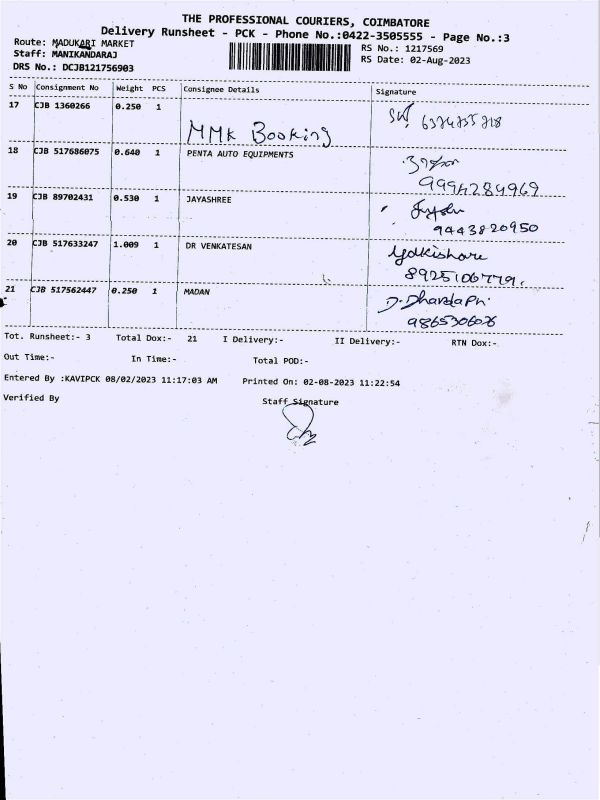 THE PROFESSIONAL COURIERS, COIMBATORE
Delivery Runsheet - PCK - Phone No.:0422-3505555 - Page No.:3
Route: MADUKARI MARKET
RS No.: 1217569
Staff: MANIKANDARAJ
RS Date: 02-Aug-2023
DRS No.: DCJB121756903
S No Consignment No Weight PCS Consignee Details Signature
17 CJB 1360266 0.250 1 MMK Booking
18 CJB 517686075 0.640 1 PENTA AUTO EQUIPMENTS
9994284969
19 CJB 89702431 0.530 1 JAYASHREE
9443820950
20 CJB 517633247 1.009 1 DR VENKATESAN
8925106779.
21 CJB 517562447 0.250 1 MADAN
9865306076
Tot. Runsheet:- 3 Total Dox:- 21 I Delivery:- II Delivery:- RTN Dox:-
Out Time:- In Time:- Total POD:-
Entered By :KAVIPCK 08/02/2023 11:17:03 AM Printed On: 02-08-2023 11:22:54
Verified By Staff Signature